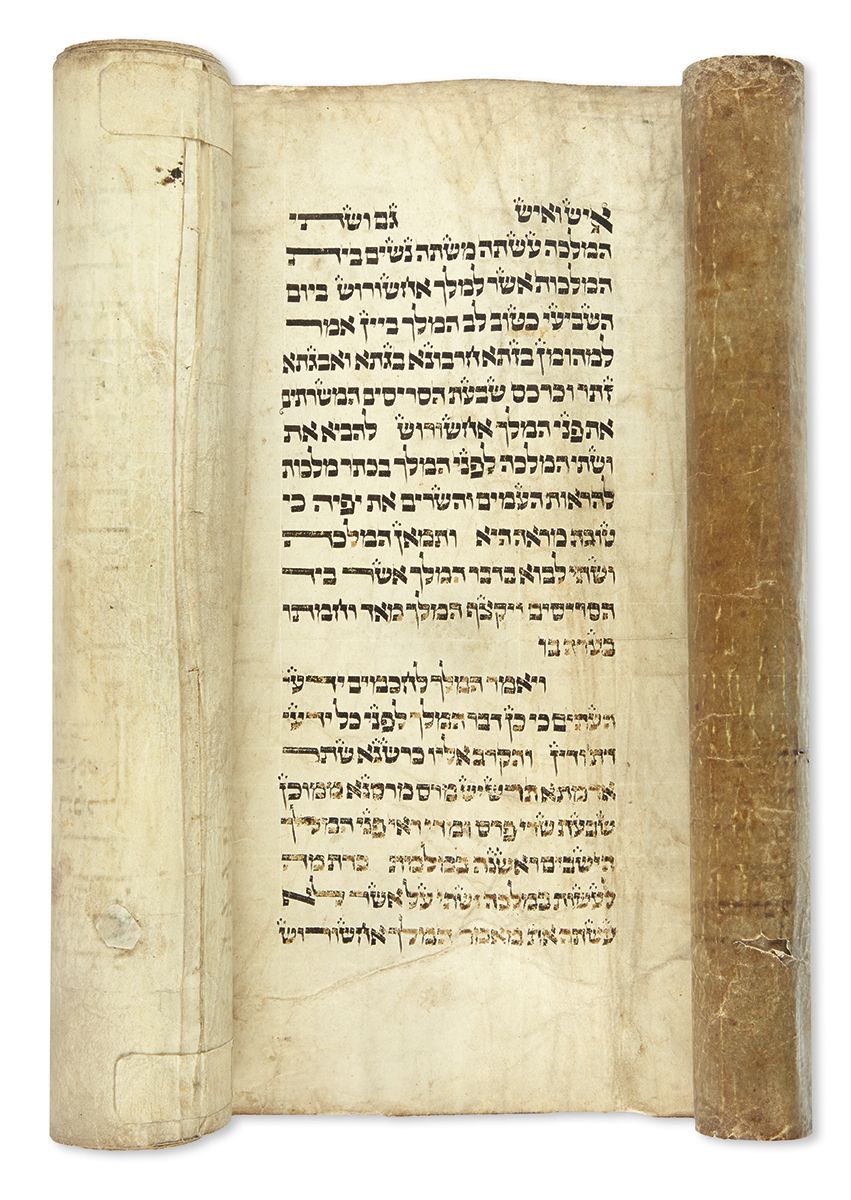 איש ואיש גם ושתי
המלכה עשתה משתה נשים בית
המלכות אשר למלך אחשורוש ביום
השביעי כטוב לב המלך ביין אמר
למהומן בזתא חרבונא בגתא ואבגתא
זתר וכרכס שבעת הסריסים המשרתים
את פני המלך אחשורוש להביא את
ושתי המלכה לפני המלך בכתר מלכות
להראות העמים והשרים את יפיה כי
טובת מראה היא ותמאן המלכה
ושתי לבוא בדבר המלך אשר ביד
הסריסים ויקצף המלך מאד וחמתו
בערה בו
ויאמר המלך לחכמים ידעי
העתים כי כן דבר המלך לפני כל ידעי
דת ודין והקרב אליו כרשנא שתר
אדמתא תרשיש מרס מרסנא ממוכן
שבעת שרי פרס ומדי ראי פני המלך
הישבים ראשנה במלכות כדת מה
לעשות במלכה ושתי על אשר לא
עשתה את מאמר המלך אחשורוש